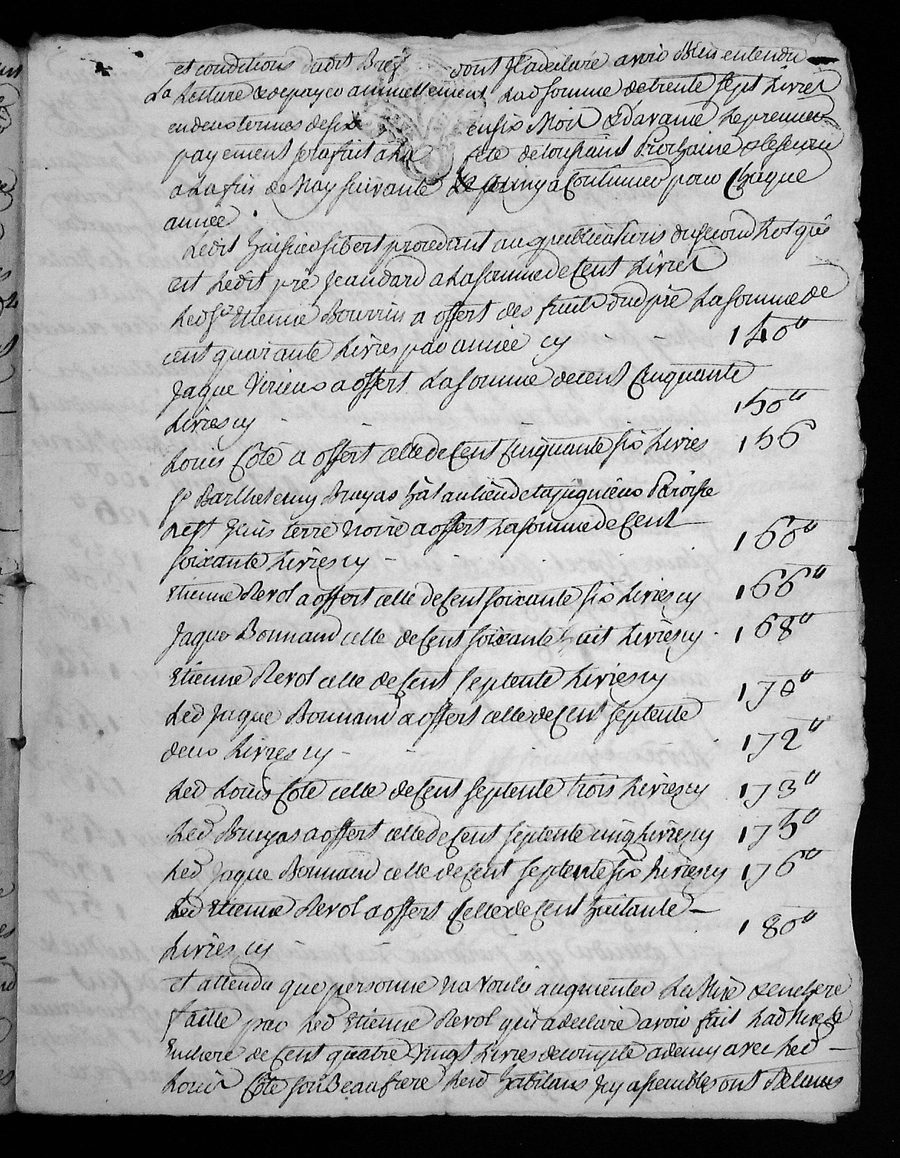 et conditions dudit Brej dont Jl a declaré avoir Bien entendu
La Lecture & de payer annuellement Lad somme de trente sept Livres
en deux termes de six en six Mois & d'avance Le premier
payement se fait a la fete de toussaint Prochaine & le second
a La fin de May suivante accoutumer pour Chaque
année.
Ledit huissier Sibert procedant aux publications du second Lot qui
est Ledit pré Jeandard a La somme de Cent Livres
Led Sr Etienne Bourrin a offert des fruits dud pré La somme de
cent quarante Livres par année cy 140"
Jaque Virieux a offert La somme de cent Cinquante
Livres cy - - - 150"
Louis Coté a offert celle de Cent Cinquante six Livres 156
Sr Barthelemy Bruyas hât au lieu de Paroisse
de St Jean terre noire a offert La somme de Cent
soixante Livres cy - 160"
Etienne Revol a offert celle de Cent soixante six Livres cy 166"
Jaque Bonnand celle de Cent soixante huit Livres cy - 168"
Etienne Revol celle de Cent Septente Livres cy 170"
Led Jaque Bonnand a offert celle de Cent Septente
deux Livres cy - 172"
Led Louis Coté celle de Cent Septente trois Livres cy 173"
Led Bruyas a offert celle de Cent Septente cinq Livres cy 175"
Led Jaque Bonnand celle de Cent Septente six Livres cy 176"
Led Etienne Revol a offert Celle de Cent huitante -
Livres cy 180"
et attendu que personne na voulu augmenter La Mise & enchere
faitte par Led Etienne Revol qui a declaré avoir fait Lad Mise &
Enchere de Cent quatre Vingt Livres de compte a demy avec Led -
Louis Coté son Beaufrere Lesd habitans Jcy assemblés ont